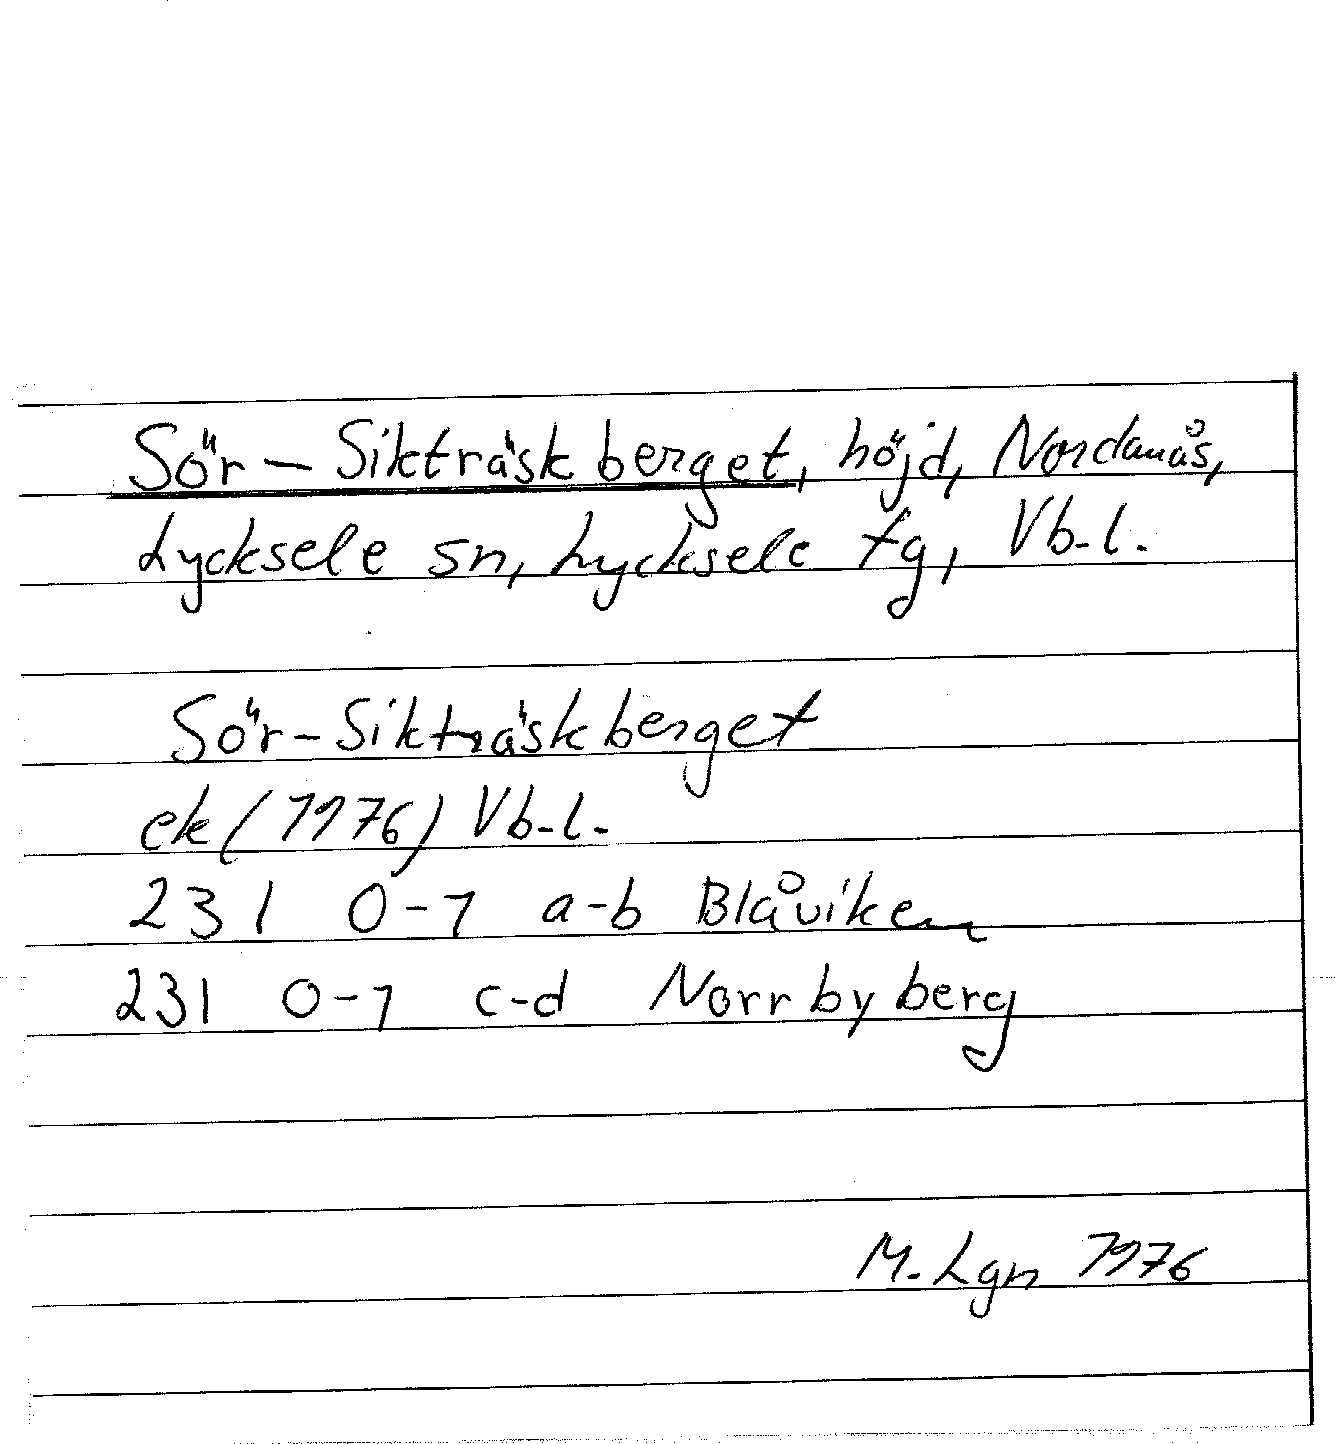 Sör-Sikträskberget, höjd, Nordanås,
Lycksele sn, Lycksele tg, Vb.l.
Sör-Sikträskberget
ek (1976) Vb.l.
231 0-1 a-b Blåviken
231 0-1 c-d Norrbyberg
M. Lgn 1976